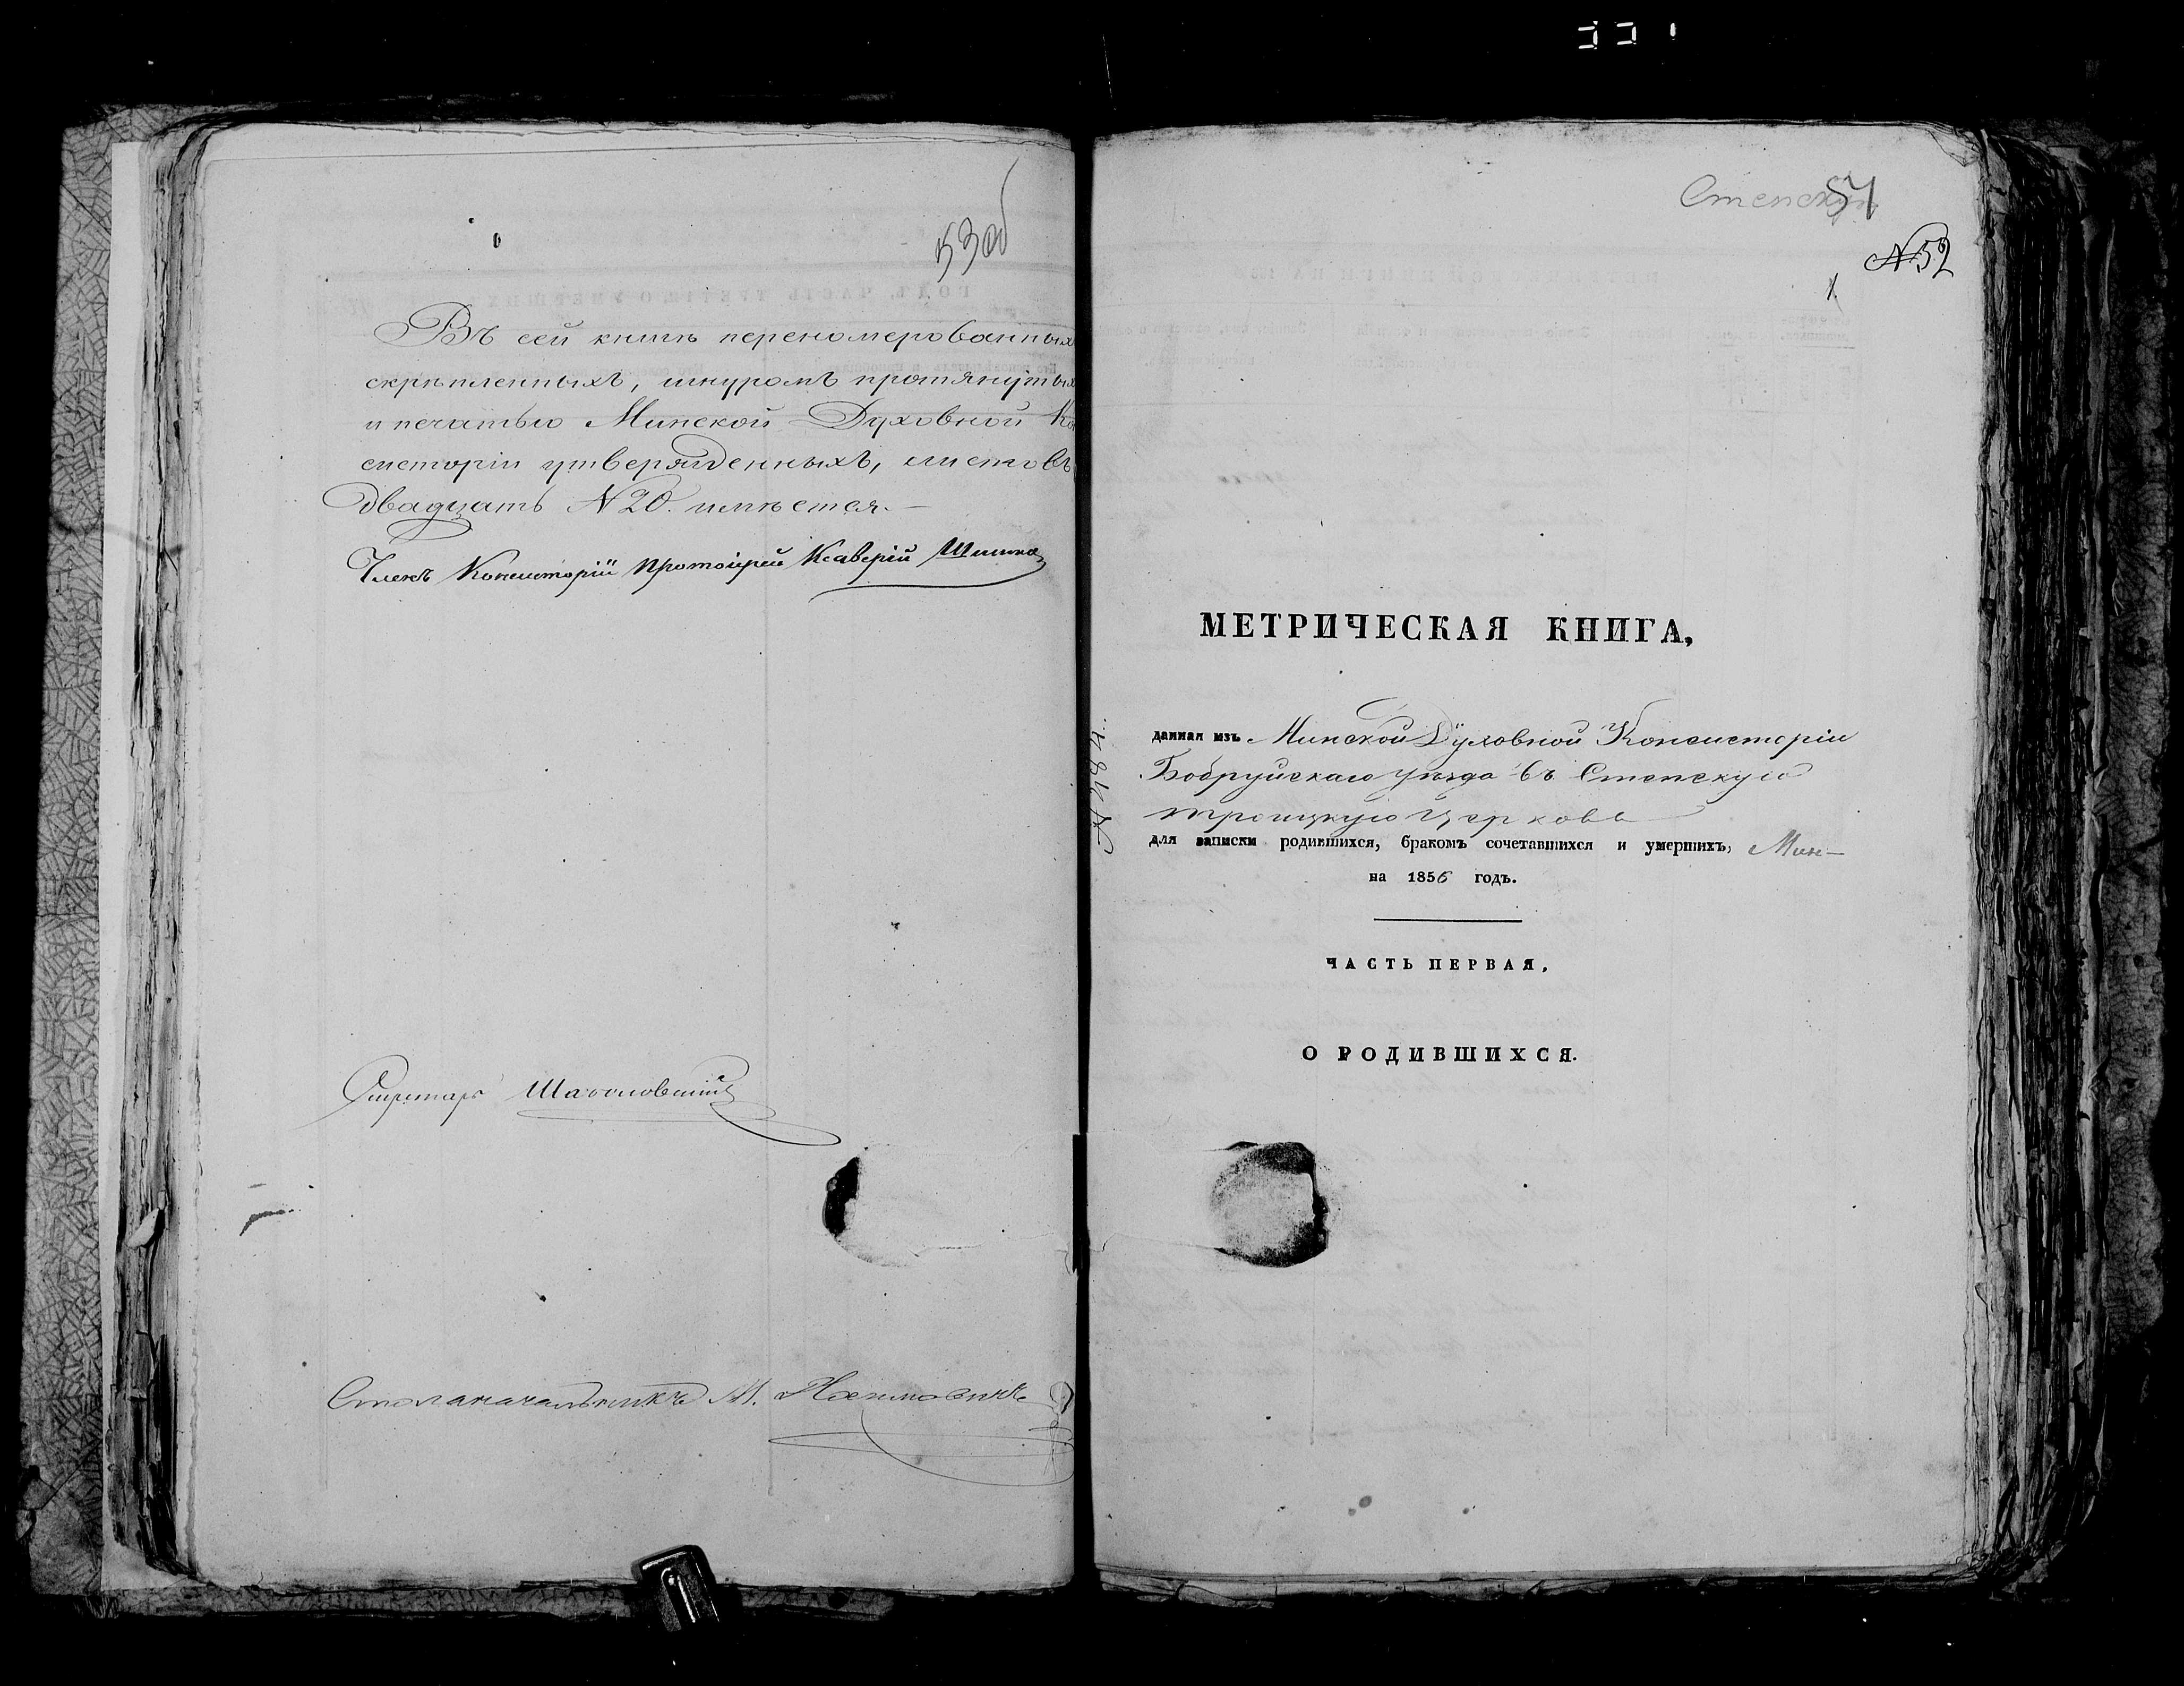 53об
Въ сей книгѣ переномерованныхъ
скрѣпленныхъ, шнуромъ протянутых
и печатью Минской Духовной Ко
систоріи утвержденныхъ, листовъ
двадцать N 20. имѣется.—
Членъ Консисторіи Протоіерей Ксаверій
Секретарь
Столоначальникъ М.
54
N 52
1
МЕТРИЧЕСКАЯ КНИГА,
данная изъ Минской Духовной Консисторіи
Бобруйскаго уѣзда въ Степскую
троицкую Церковь
для записки родившихся, бракомъ сочетавшихся и умершихъ, Мин—
на 1856 годъ.
ЧАСТЬ ПЕРВАЯ,
О РОДИВШИХСЯ.